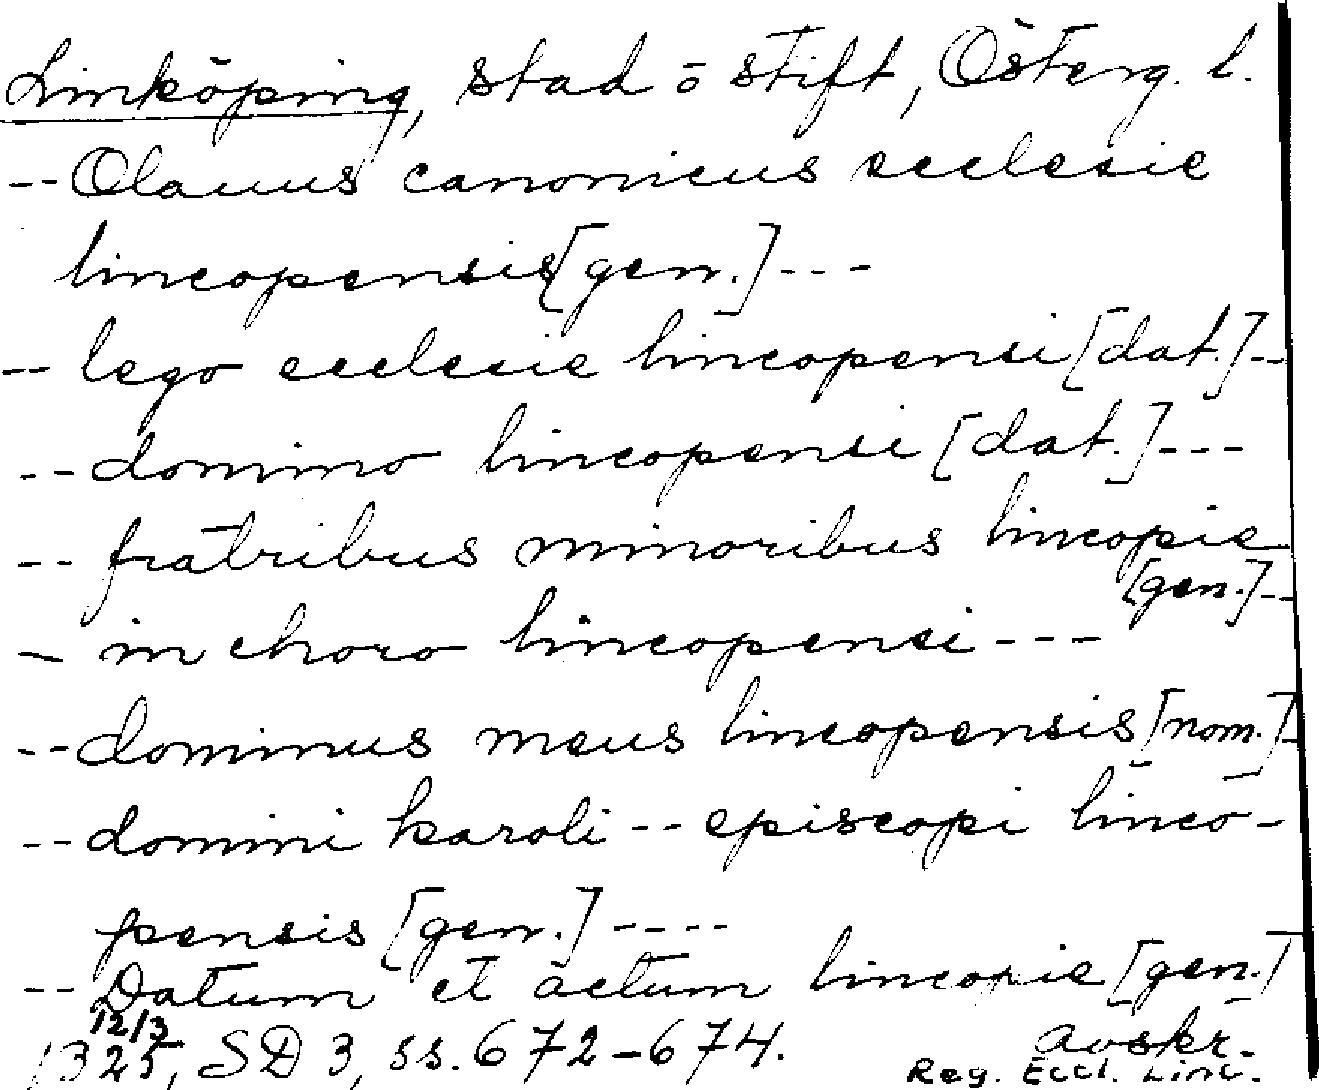 Linköping, stad o stift, Österg. l.
-- Olauus canonicus ecclesie
lincopensis [gen.] ---
-- lego ecclesie lincopensi [dat.] --
-- domino lincopensi [dat.] ---
-- fratribus minoribus lincopie
[gen.] --
-- in choro lincopensi ---
-- dominus meus lincopensis [nom.] -
-- domini karoli -- episcopi linco-
pensis [gen.] ----
-- Datum et actum lincopie [gen.]
12/3
1325, SD 3, ss. 672-674. avskr.
Reg. Eccl. Linc.